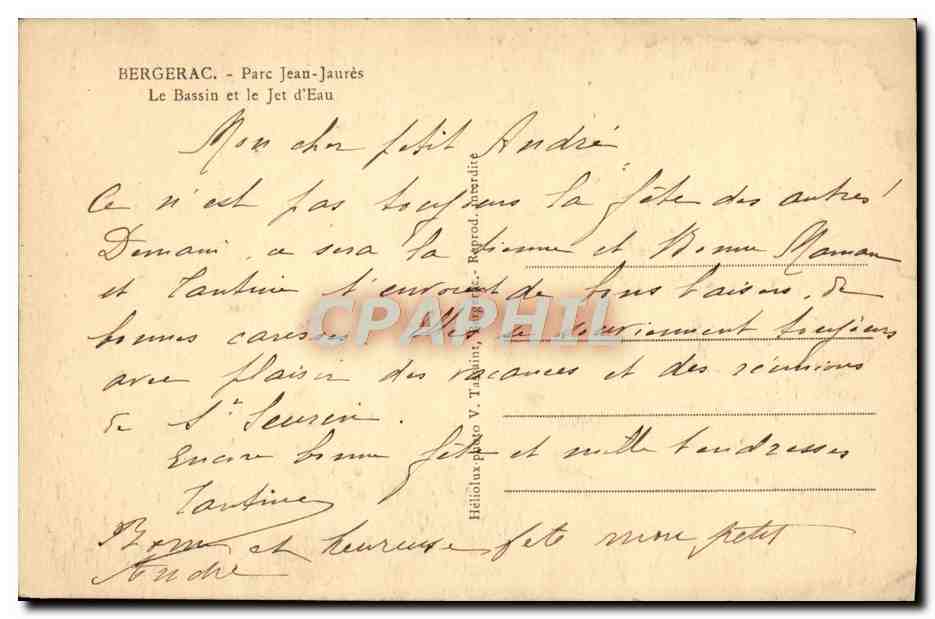 BERGERAC. - Parc Jean-Jaurès
Le Bassin et le Jet d'Eau
Mon cher petit André
Ce n'est pas toujours la fête des autres!
Demain, ce sera la tienne et Bonne Maman
et Tantine t'envoient de bons baisers, de
bonnes caresses. Elles se souviennent toujours
avec plaisir des vacances et des réunions
de St Seurin.
Encore bonne fête et mille tendresses
Tantine
Bonne et heureuse fete mon petit
André
Héliolux-photo V. Tassaint, Bergerac.- Reprod. interdite
CPAPHIL